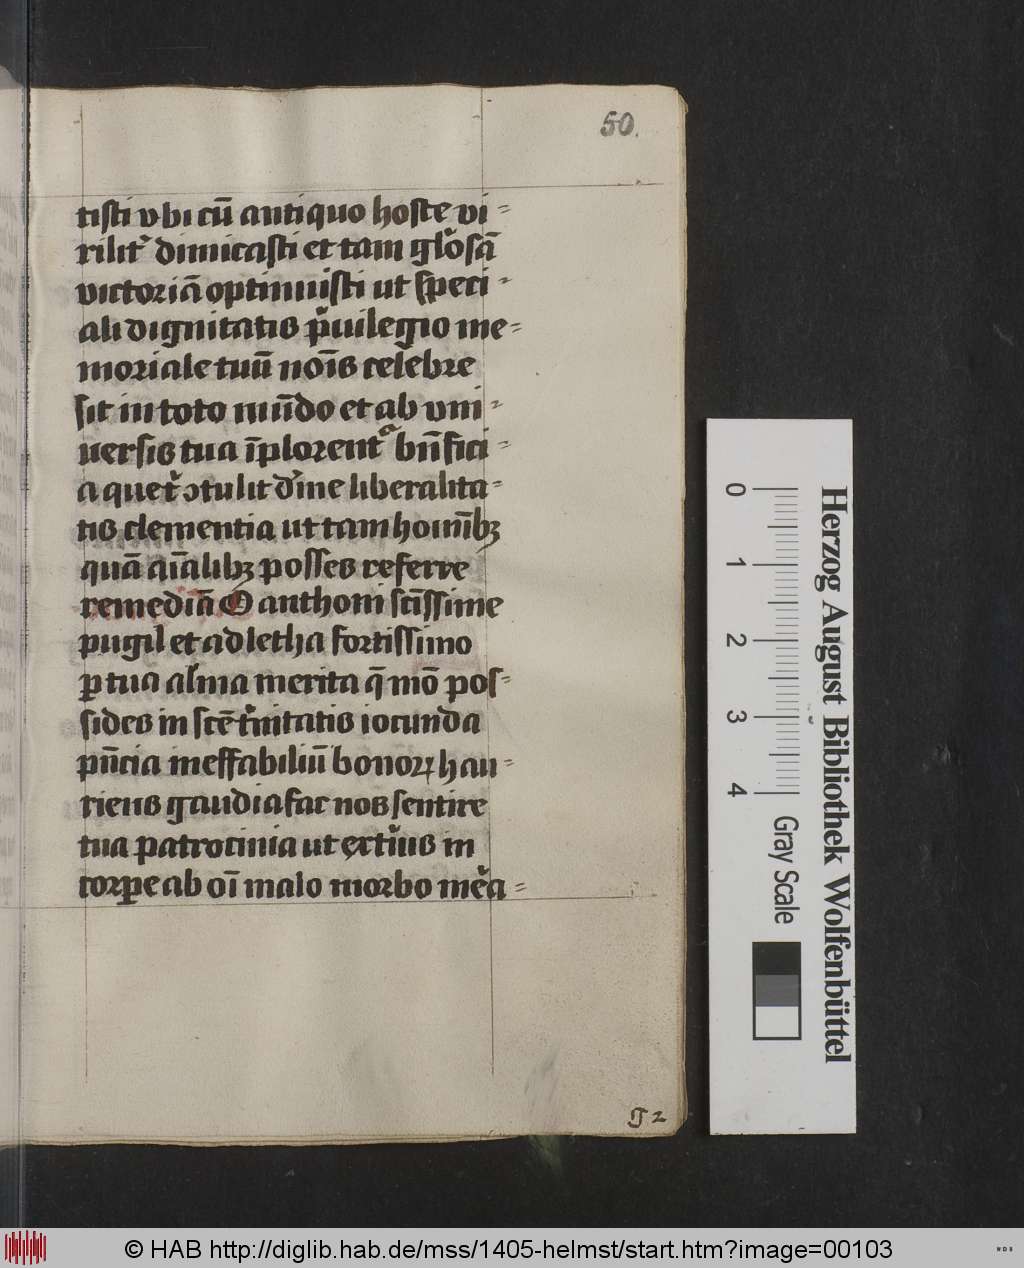 50.
tisti vbi cū antiquo hoste vi⸗
rilit͛ dimicasti et tam gl̓osā
victoriā optinuisti ut speci⸗
ali dignitatis p̓uilegio me⸗
moriale tuū noīs celebre
sit in toto mūdo et ab vni⸗
uersis tua īplorentᵃ bn̄fici
a que t̓ ꝯtulit d̓ine liberalita⸗
tis clementia ut tam hoīnibꝫ
quā aīalibꝫ posses referre
remediā O anthoni sc̄issime
pugil et adletha fortissimo
ꝑ tua alma merita q̄ mō pos⸗
sides in sc̄e t̓nitatis iocunda
pn̄cia ineffabiliū bonoꝝ hau⸗
riens gaudia fac nos sentire
tua patrocinia ut ext̓ius in
corꝑe ab oī malo morbo me̓a⸗
g 2
Herzog August Bibliothek Wolfenbüttel
0 1 2 3 4 Gray Scale
© HAB http://diglib.hab.de/mss/1405-helmst/start.htm?image=00103